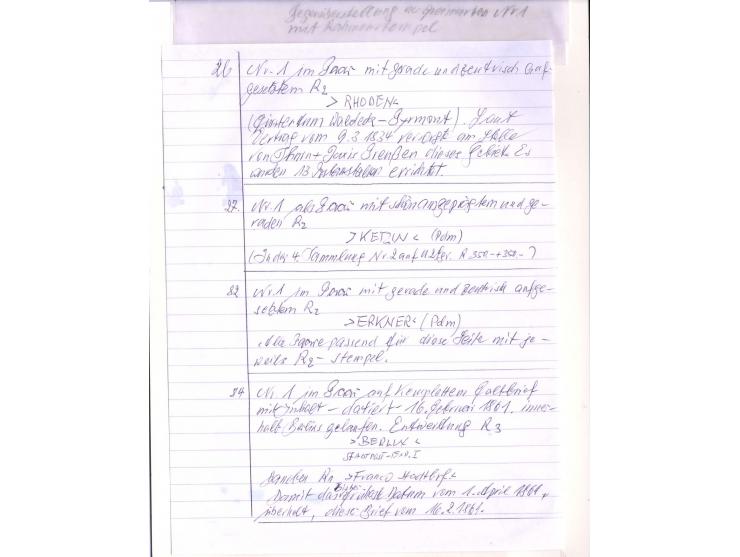 Gegenüberstellung Nr 1
mit Rahmenstempel
26 Nr. 1 im Paar mit gerade und zentrisch auf-
gesetztem R2
> RHODEN <
(Fürstentum Waldeck - Pyrmont). Laut
Vertrag vom 9.3.1834 versorgt an Stelle
von Thurn + Taxis Preußen dieses Gebiet. Es
wurden 13 Poststellen errichtet.
27. Nr. 1 als Paar mit schön ausgeprägtem und ge-
raden R2
> KETZIN < (Pdm)
(In der 4. Sammlung Nr. 2 auf 1 1/2 Sgr. R 350.- + 350.- ?)
32 Nr. 1 im Paar mit gerade und zentrisch aufge-
setztem R2
> ERKNER < (Pdm)
Alle Paare passend für diese Seite mit je-
weils R2 - Stempel.
34 Nr. 1 im Paar auf komplettem Faltbrief
mit Inhalt - datiert - 16. Februar 1861. inner-
halb Berlins gelaufen. Entwertung R3
> BERLIN <
STADTPOST-EXP. I
Daneben > Franco Stadtbrf. <
bisher
Damit das früheste Datum vom 1. April 1861,
überholt, dieser Brief vom 16.2.1861.